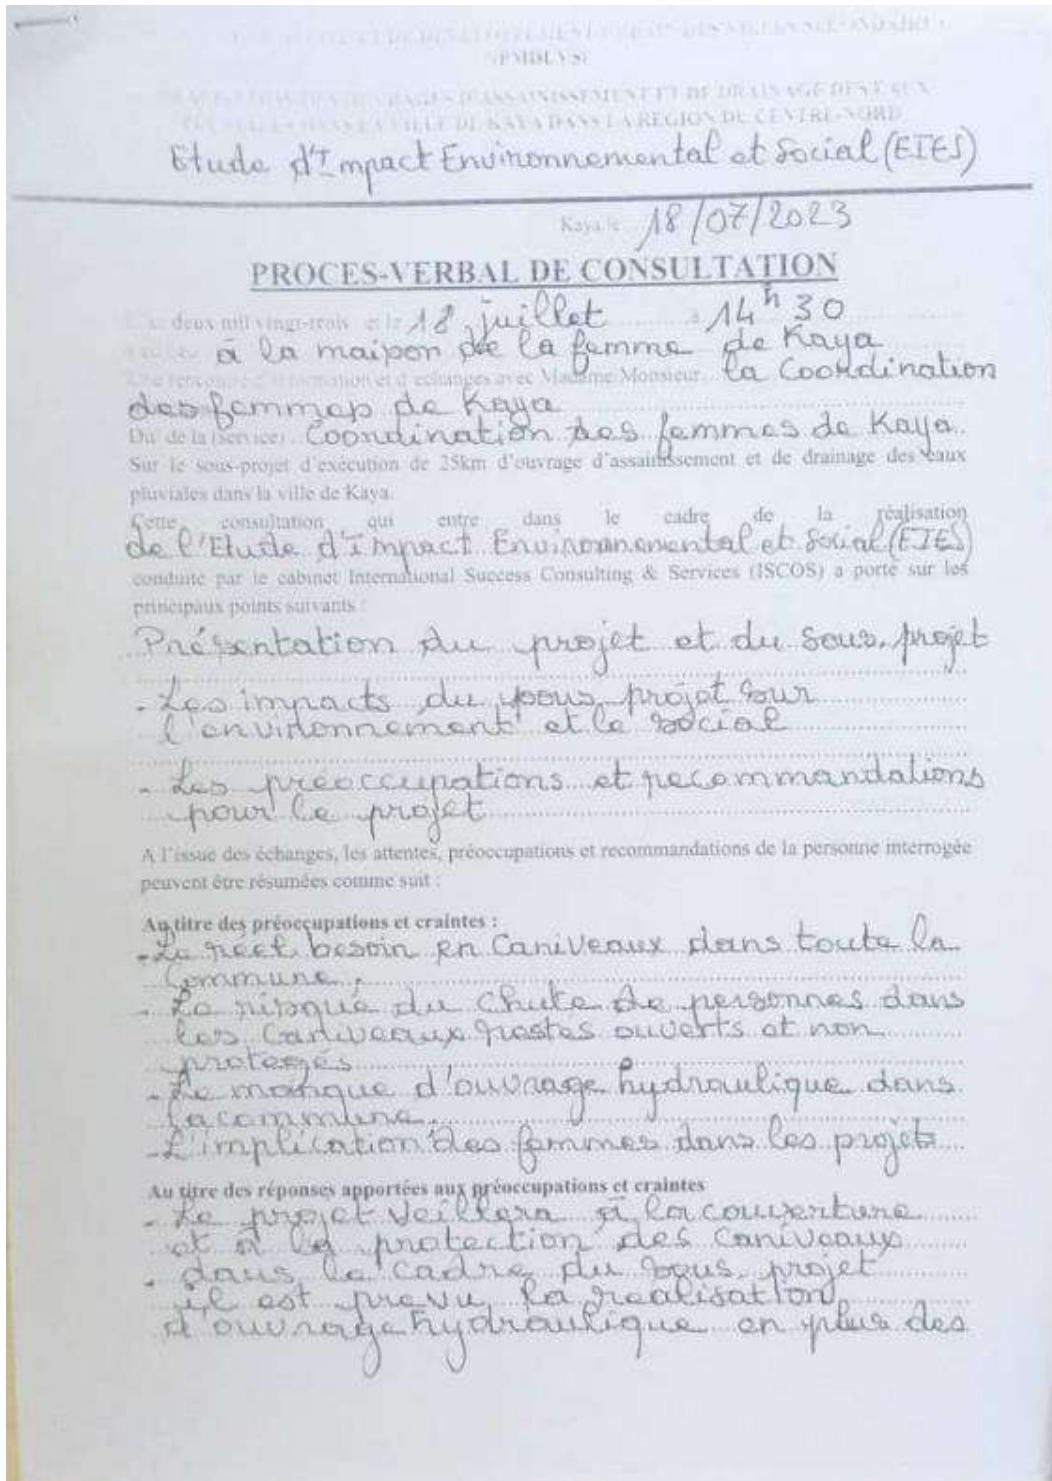 DE DEVELOPPEMENT DES VILLES SECONDAIRES
(PMDUVS)
D'OUVRAGES D'ASSAINISSEMENT ET DE DRAINAGE DES EAUX
PLUVIALES DANS LA VILLE DE KAYA DANS LA REGION DU CENTRE-NORD
Etude d'Impact Environnemental et Social (EIES)
Kaya le 18/07/2023
PROCES-VERBAL DE CONSULTATION
L'an deux mil vingt-trois et le 18 juillet à 14h30
à la maison de la femme de Kaya
Une rencontre d'information et d'echanges avec Madame/Monsieur la Coordination
des femmes de Kaya
Du/de la (service) Coordination des femmes de Kaya
Sur le sous-projet d'exécution de 25km d'ouvrage d'assainissement et de drainage des eaux
pluviales dans la ville de Kaya.
Cette consultation qui entre dans le cadre de la réalisation
de l'Etude d'Impact Environnemental et Social (EIES)
conduite par le cabinet International Success Consulting & Services (ISCOS) a porté sur les
principaux points suivants :
Présentation du projet et du sous-projet
- Les impacts du sous projet sur
l'environnement et le social
- Les préoccupations et recommandations
pour le projet
A l'issue des échanges, les attentes, préoccupations et recommandations de la personne interrogée
peuvent être résumées comme suit :
Au titre des préoccupations et craintes :
- Le réel besoin en Caniveaux dans toute la
Commune.
- Le risque du chute de personnes dans
les Caniveaux restes ouverts et non
protegés
- Le manque d'ouvrage hydraulique dans
la commune.
- L'implication des femmes dans les projets
Au titre des réponses apportées aux préoccupations et craintes
- Le projet veillera à la couverture
et à la protection des Caniveaux
- dans le cadre du sous projet
il est prevu la realisation
d'ouvrage hydraulique en plus des